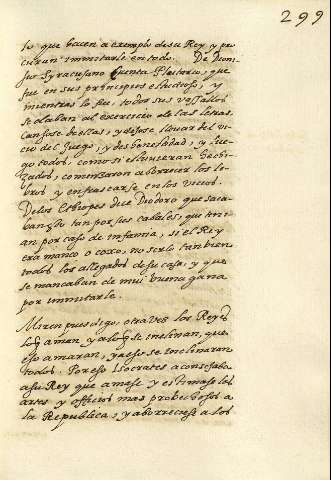 299
lo que hacen a exemplo de su Rey y pro
curan immitarle en todo. De Dioni
sio Syracusano cuenta Plutarco, que
fue en sus principios estudioso, y
mientras lo fue, todos sus vasallos
se daban al exercicio de las letras,
Cansose de ellas, y dejose llevar del vi
cio del Juego, y deshonestidad, y lue
go todos, como si estuvieran hechi
zados, comenzaron a borrecer los li
bros y enfrascarse en los vicios.
De los Ethiopes dice Diodoro que
tan por sus cabales, que tení
an por caso de infamia, si el Rey
era manco o coxo, no serlo tambien
todos los allegados de su casa, y que
se mancaban de mui buena gana
por immitarle.
Miren pues digo, otra vez los Reyes
lo q̃ amen y a lo q̃ se inclinan, que
eso amaran, y a eso se inclinaran
todos. Por eso Isocrates aconsejaba
a su Rey que amase y estimase las
artes y officios mas probechosos a
la Republica, y aborreciese a los